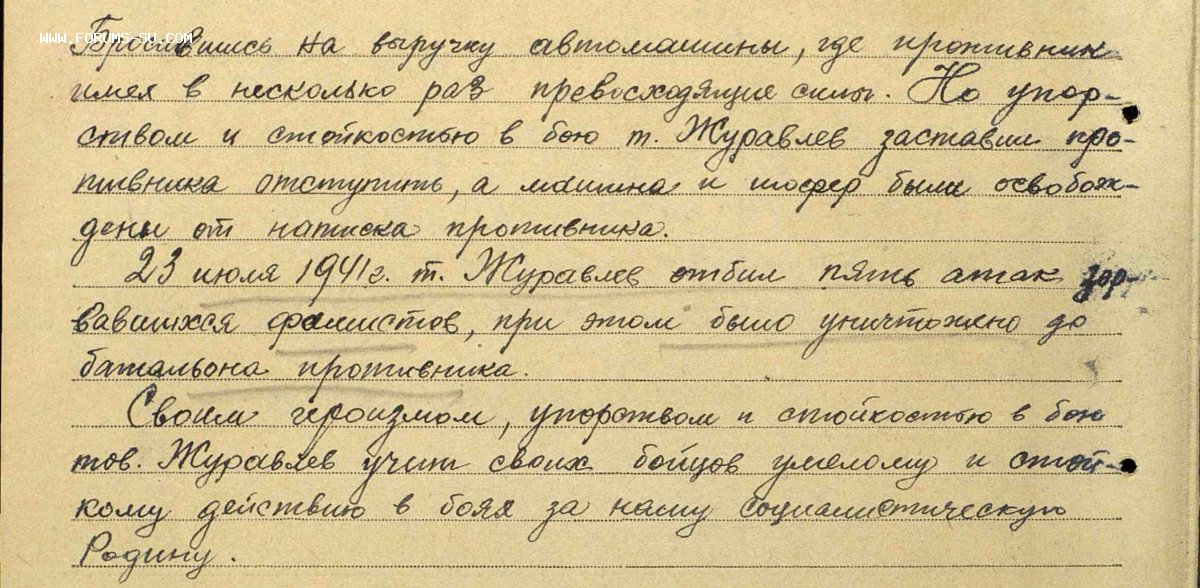 WWW.FORUMS-SU.COM
Бросившись на выручку автомашины, где противник
имел в несколько раз превосходящие силы. Но упор-
ством и стойкостью в бою т. Журавлев заставил про-
тивника отступить, а машина и шофер были освобож-
дены от натиска противника.
23 июля 1941 г. т. Журавлев отбил пять атак зар-
вавшихся фашистов, при этом было уничтожено до
батальона противника.
Своим героизмом, упорством и стойкостью в бою
тов. Журавлев учит своих бойцов умелому и стой-
кому действию в боях за нашу социалистическую
Родину.